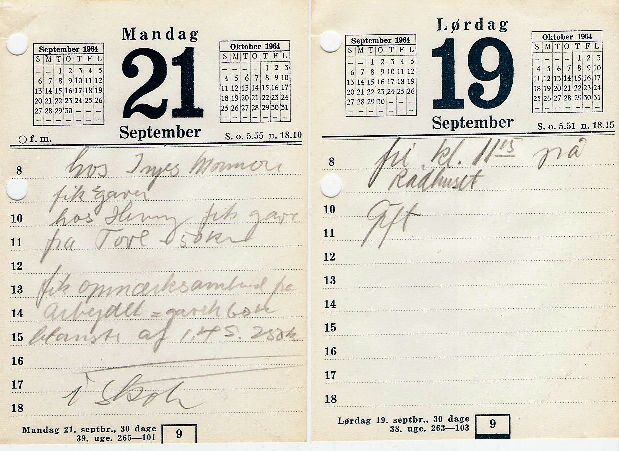 Mandag
September 1964
S M T O T F L
– – 1 2 3 4 5
6 7 8 9 10 11 12
13 14 15 16 17 18 19
20 21 22 23 24 25 26
27 28 29 30
21
September
Oktober 1964
S M T O T F L
– – – – 1 2 3
4 5 6 7 8 9 10
11 12 13 14 15 16 17
18 19 20 21 22 23 24
25 26 27 28 29 30 31
f. m.
S. o. 5.55 n. 18.10
8 hos Inges
fik gaver
10 hos Henny fik gave
11 fra Tove 50 kr
12
13 fik opmærksomhed fra
14 Arbejdet = gavek
15 blanst af
16
17 i Skole
18
Mandag 21. septbr., 30 dage
39. uge. 265—101
9
Lørdag
September 1964
S M T O T F L
– – 1 2 3 4 5
6 7 8 9 10 11 12
13 14 15 16 17 18 19
20 21 22 23 24 25 26
27 28 29 30
19
September
Oktober 1964
S M T O T F L
– – – – 1 2 3
4 5 6 7 8 9 10
11 12 13 14 15 16 17
18 19 20 21 22 23 24
25 26 27 28 29 30 31
S. o. 5.51 n. 18.15
8 fri kl. 11 15 på
Rådhuset
10 gift
11
12
13
14
15
16
17
18
Lørdag 19. septbr., 30 dage
38. uge. 263—103
9